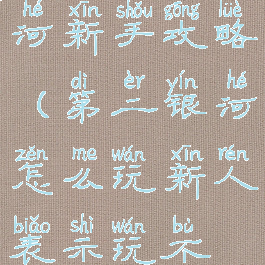 hé xīn shǒu gōng lüè
河新手攻略
dì èr yín hé
(第二银河
zěn me wán xīn rén
怎么玩新人
biǎo shì wán bù
表示玩不